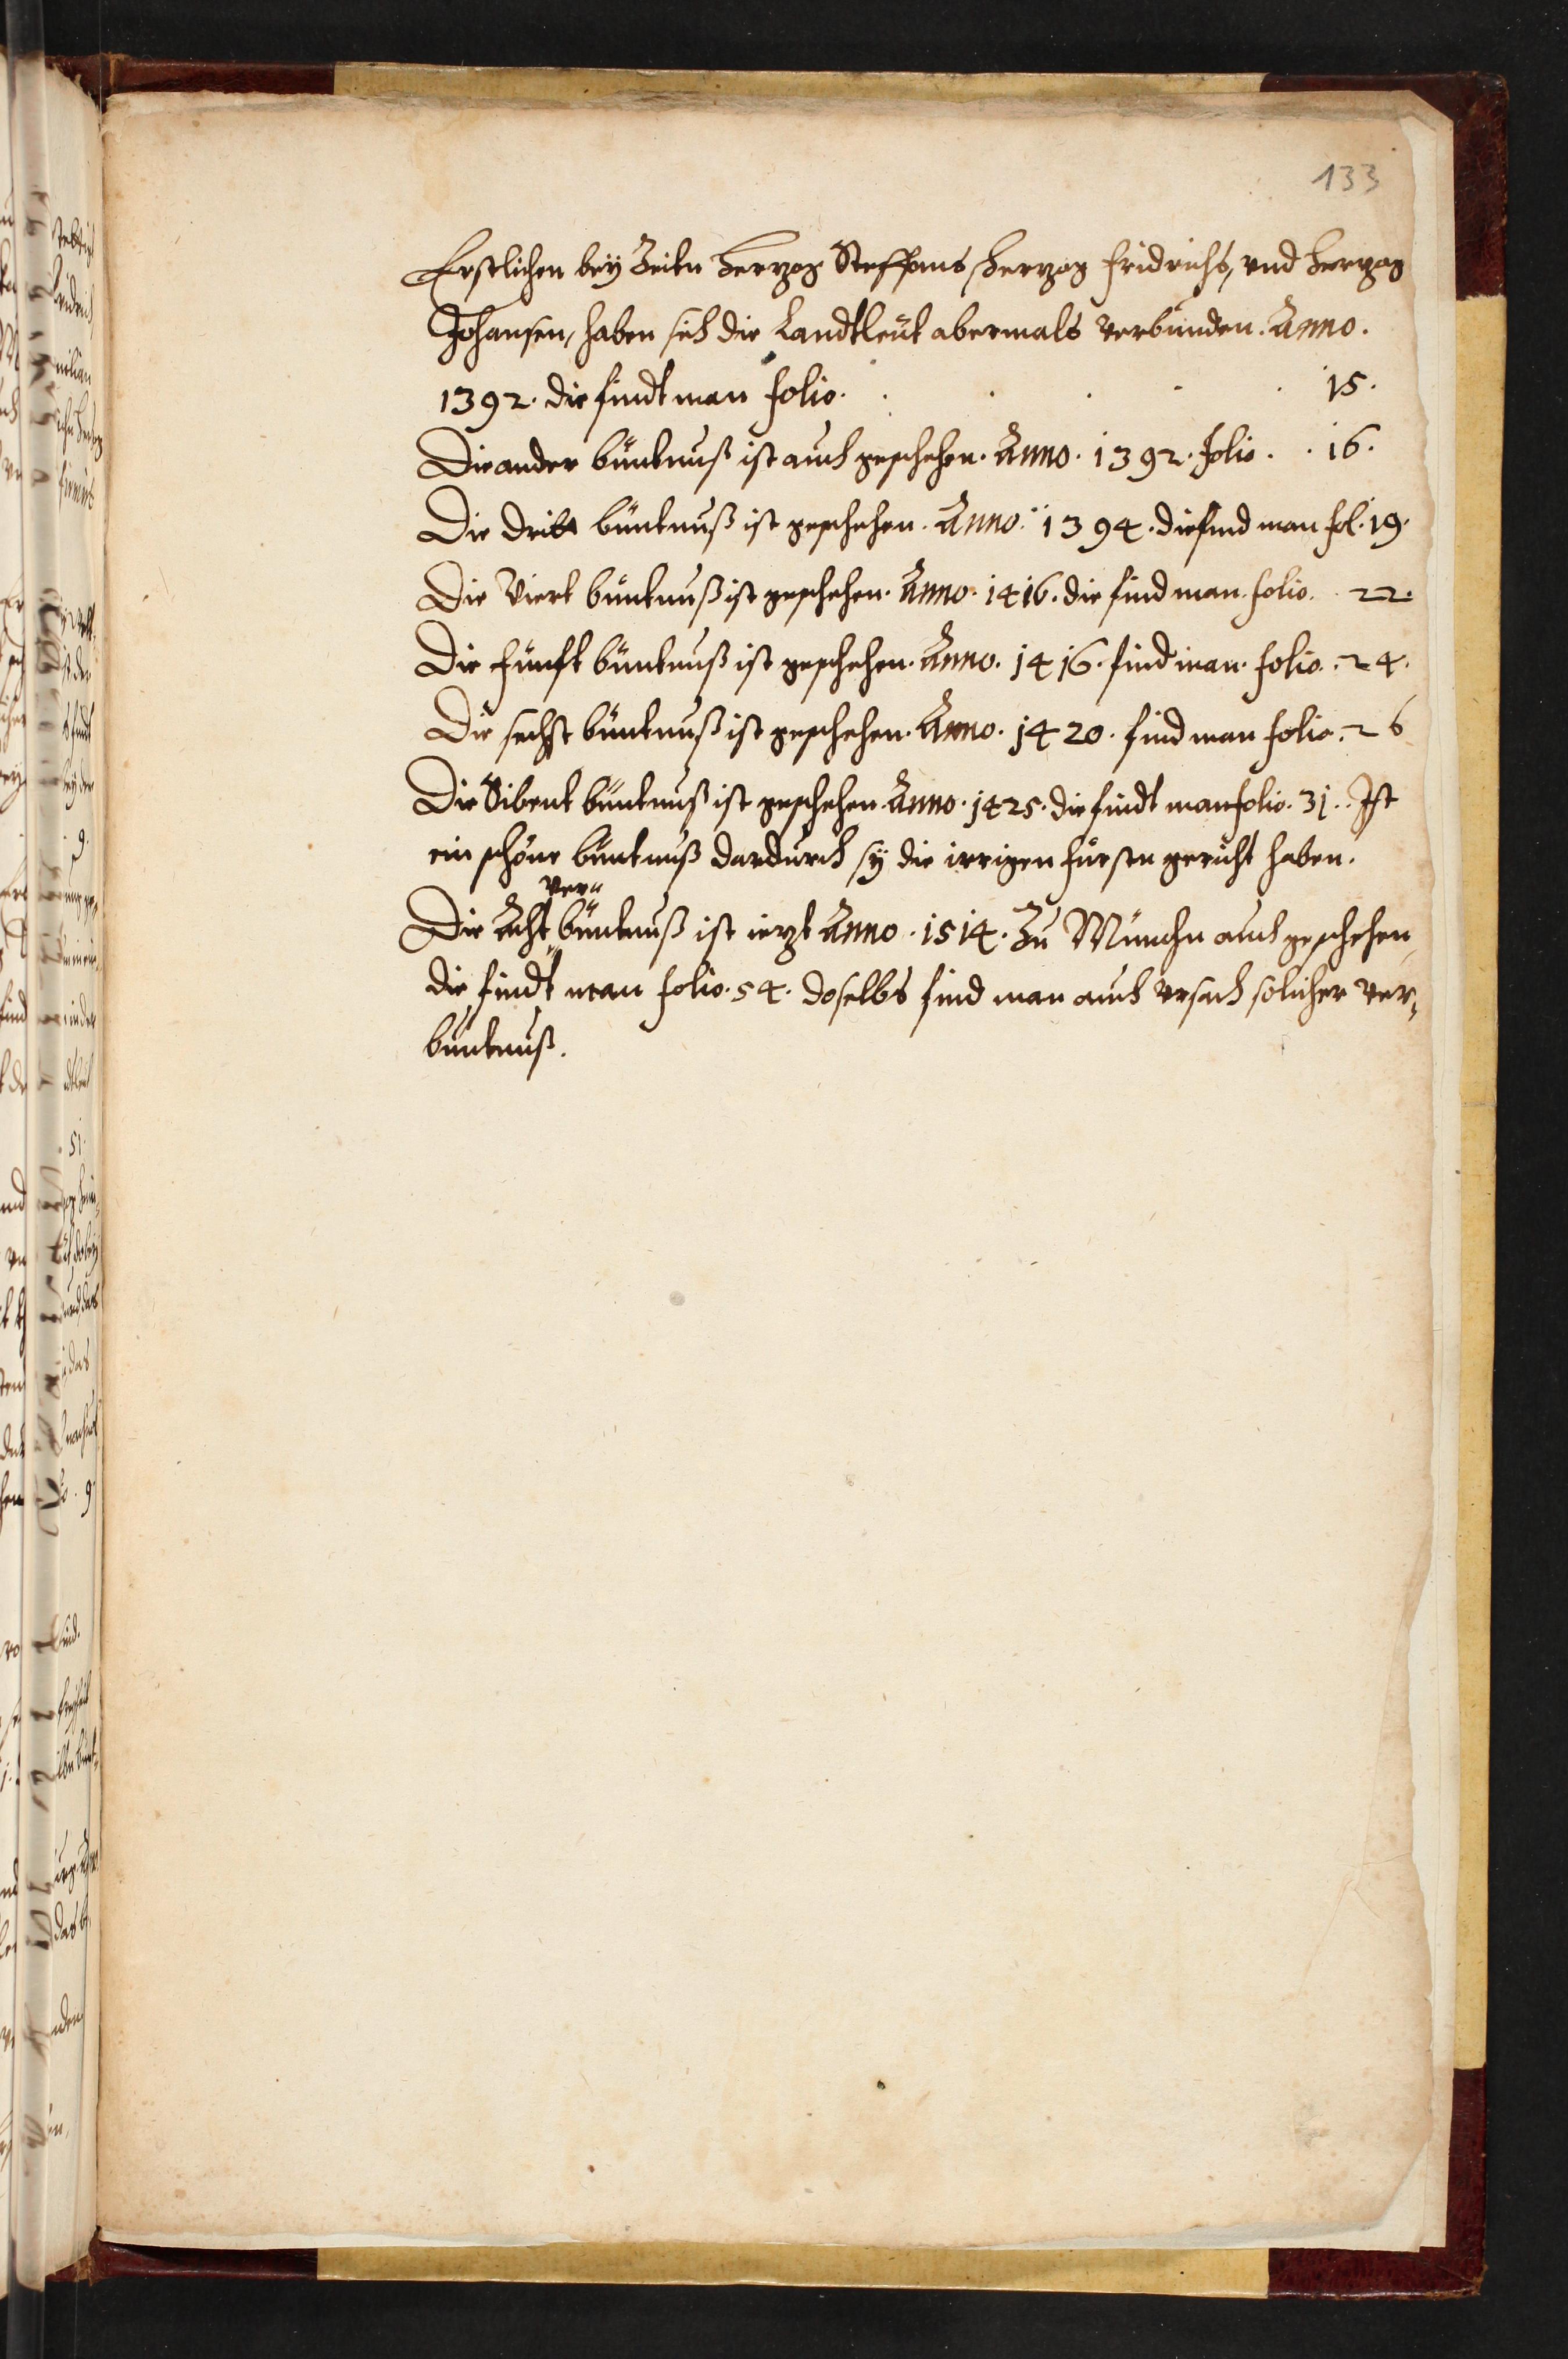 133
Erstlichen bey Zeitn Herzog Steffans, Herzog Fridrichs, vnd Herzog
Johansen, haben sich die Landtleut abermals verbunden. Anno.
1392. die findt man folio. . . . . 15.
Die ander büntnuß ist auch geschehen. Anno. 1392. folio. . 16.
Die dritt büntnuß ist geschehen. Anno. 1394. die find man fol. 19.
Die Viert büntnuß ist geschehen. Anno. 1416. die find man. folio. 22.
Die fünfft büntnuß ist geschehen. Anno. 1416. find man. folio. 24.
Die sechst büntnuß ist geschehen. Anno. 1420. find man folio. 26
Die Sibent büntnuß ist geschehen. Anno. 1425. die findt man folio. 31. Ist
ein schöne büntnuß dardurch sy die irrigen fürsten gericht haben.
ver=
Die Acht büntnuß ist iezt Anno. 1514. Zu Münchn auch geschehen,
die findt man folio. 54. doselbs find man auch vrsach solicher ver=
büntnuß.